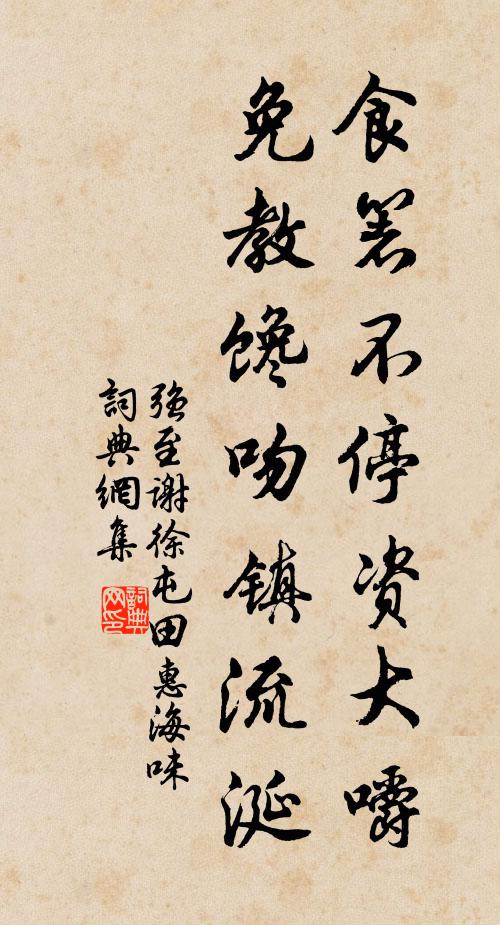 食箸不停资大嚼
免教馋吻镇流涎
强至谢徐屯田惠海味
詞典網集
詞典
网印